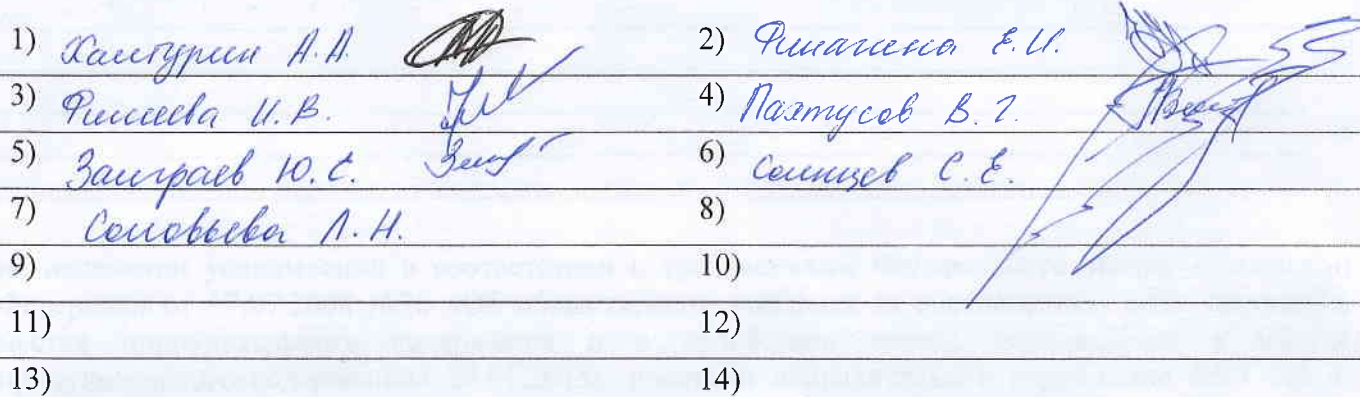 1) Хантурин А.А. 2) Финагина Е.И.
3) Фишева И.В. 4) Пахтусов В.Г.
5) Заиграев Ю.С. 6) Солнцев С.Е.
7) Соловьева Л.Н. 8)
9) 10)
11) 12)
13) 14)